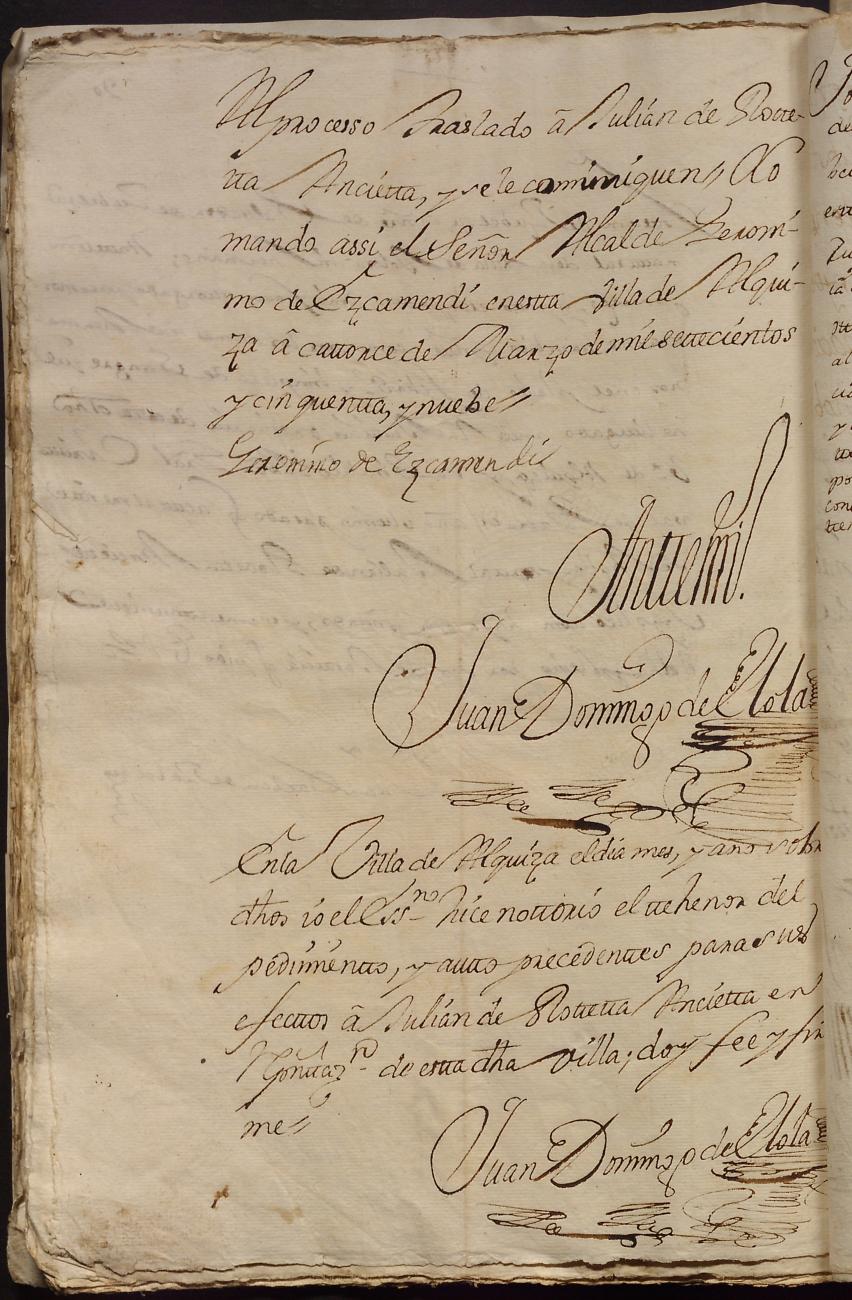 Al processo traslado â Julian de Rotte-
tta Ancietta, y se le comuniquen, lo
mando assi el Señor Alcalde Geroni-
mo de Ezcamendi en estta Villa de Alqui-
za â cattorce de Marzo de mil settecientos
y cinquentta, y nuebe
Geronimo de Ezcamendi
Antte mi.
Juan Domingo de Elola
En la Villa de Alquiza el dia mes, y año sobre
dhos io el Essno hice nottorio el tthenor del
pedimentto, y autto precedenttes para sus
efecttos â Julian de Rottetta Ancietta en
de estta dha villa; doy fee y fir
me
Juan Domingo de Elola